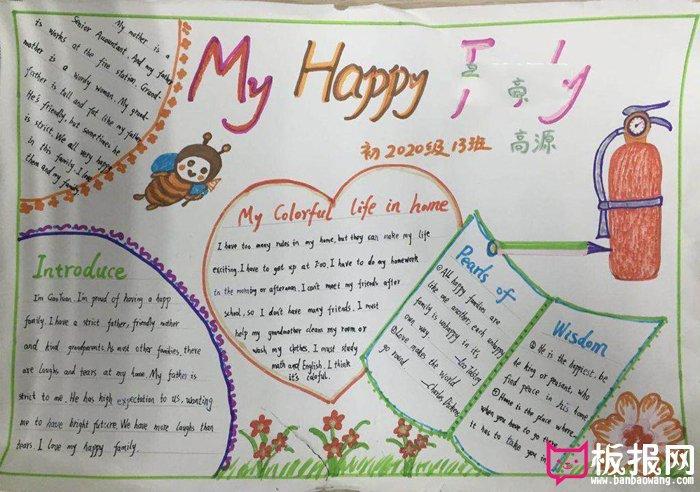 My mother is a
Senior Accountant. And my father
is works at the fire station. Grand-
mother is a wordy woman. My grand-
father is tall and fat like my father.
He's friendly, but sometimes he
is strict. We all very happy
in this family. I love
them and my family.
My Happy F ly
初2020级13班
高源
My Colorful life in home
I have too many rules in my home, but they can make my life
exciting. I have to get up at 7:00. I have to do my homework
in the morning or afternoon. I can't meet my friends after
school, so I don't have many friends. I must
help my grandmother clean my room or
wash my clothes. I must study
math and English. I think
it's colorful.
Introduce
I'm GaoYuan. I'm proud of having a happ
family. I have a strict father, friendly mother
and kind grandparents. As most other families, there
are laughs and tears at my home. My father is
strict to me. He has high expectation to us, wanting
me to have bright future. We have more laughs than
tears. I love my happy family.
Pearls of
①All happy families are
like one another, each unhappy
family is unhappy in it's
own way.
②Love makes the world
go round.
Wisdom
① He is the happiest, be
he king or peasant, who
find peace in his home
② Home is the place where
when you have to go there
it has to take you in
板报网
www.banbaowang.com